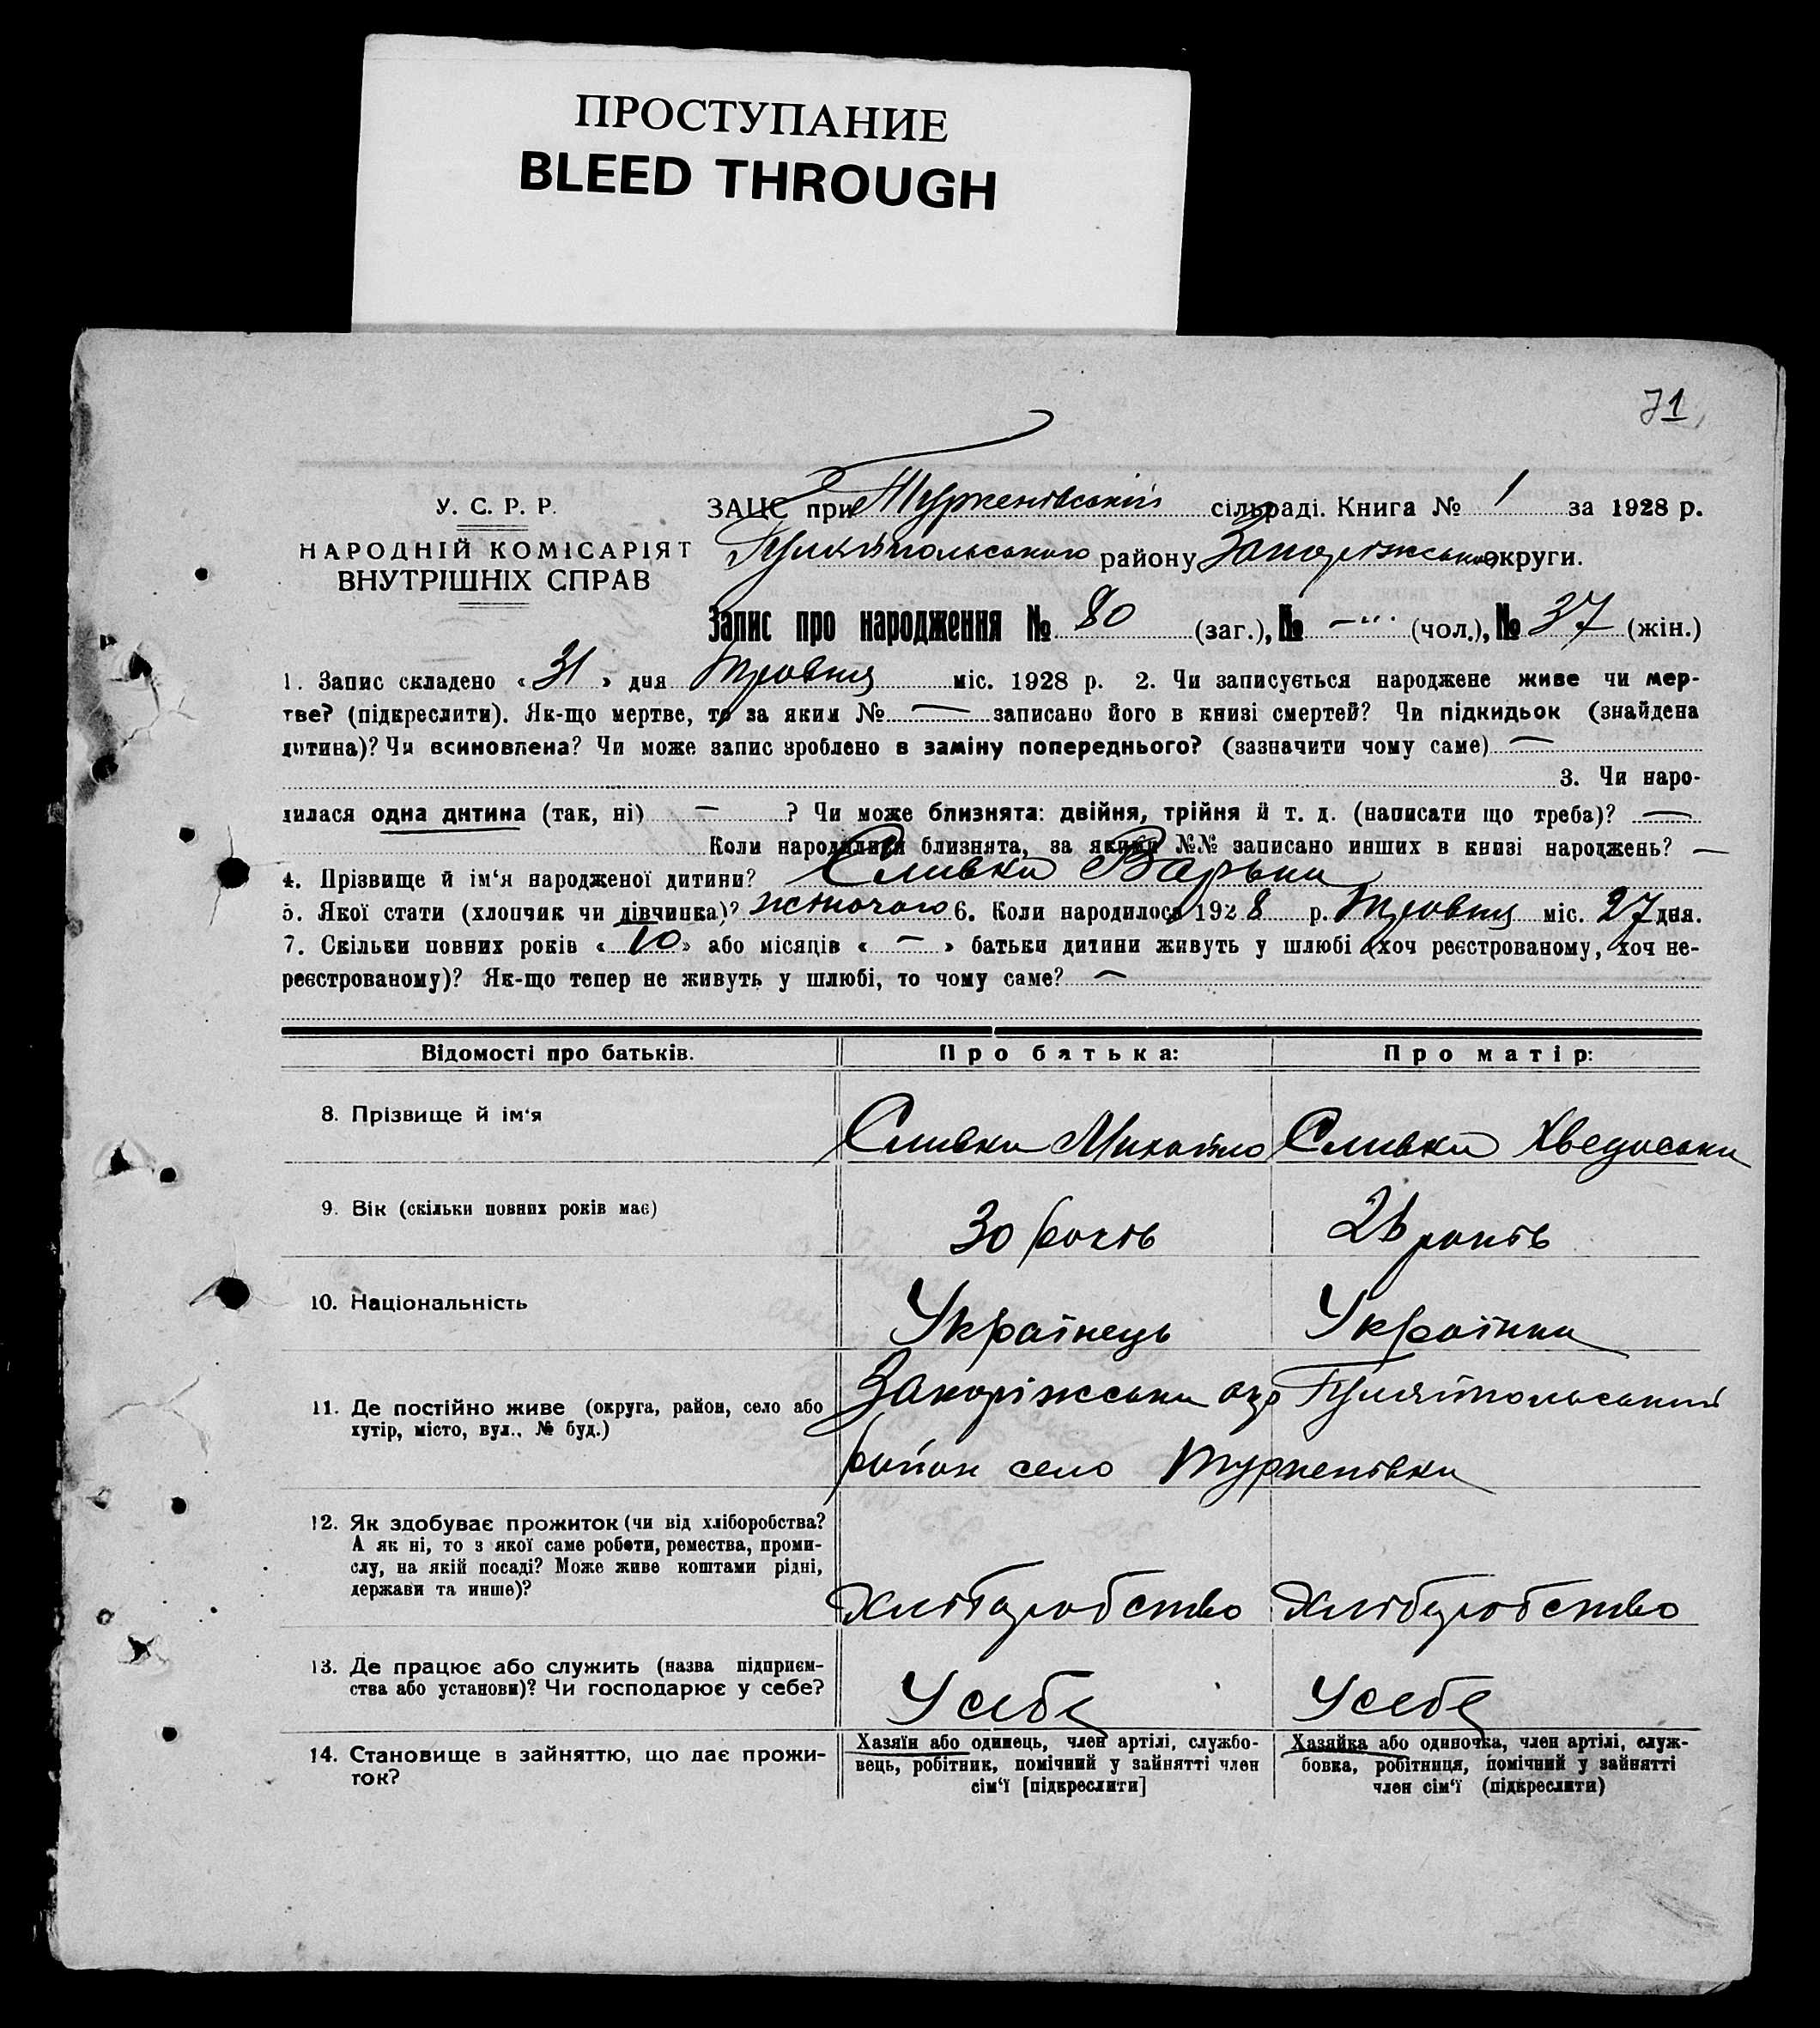 ПРОСТУПАНИЕ
BLEED THROUGH
71
У. С. Р. Р.
НАРОДНІЙ КОМІСАРІЯТ
ВНУТРІШНІХ СПРАВ
ЗАЦС при Туркенівській сільраді. Книга № 1 за 1928 р.
Гуляйпольського району Запоріжської округи.
Запис про народження № 80 (заг.), № — (чол.), № 37 (жін.)
1. Запис складено « 31 » дня Травня міс. 1928 р. 2. Чи записується народжене живе чи мер-
тве? (підкреслити). Як-що мертве, то за яким № — записано його в книзі смертей? Чи підкидьок (знайдена
дитина)? Чи всиновлена? Чи може запис зроблено в заміну попереднього? (зазначити чому саме) —
3. Чи наро-
дилася одна дитина (так, ні) — ? Чи може близнята: двійня, трійня й т. д. (написати що треба)? —
Коли народилися близнята, за якими №№ записано инших в книзі народжень? —
4. Прізвище й ім‘я народженої дитини? Сливка Варька
5. Якої стати (хлопчик чи дівчинка)? жіночого 6. Коли народилось 1928 р. Травня міс. 27 дня.
7. Скільки повних років « 10 » або місяців « — » батьки дитини живуть у шлюбі (хоч реєстрованому, хоч не-
реєстрованому)? Як-що тепер не живуть у шлюбі, то чому саме? —
Відомості про батьків. Про батька: Про матір:
8. Прізвище й ім‘я Сливка Михайло Сливка Хведоська
9. Вік (скільки повних років має) 30 років 26 років
10. Національність Українець Українка
11. Де постійно живе (округа, район, село або
хутір, місто, вул., № буд.)
Запоріжська окр Гуляйпольський
район село Туркенівка
12. Як здобуває прожиток (чи від хліборобства?
А як ні, то з якої саме роботи, ремества, проми-
слу, на якій посаді? Може живе коштами рідні,
держави та инше)?
Хліборобство Хліборобство
13. Де працює або служить (назва підприєм-
ства або установи)? Чи господарює у себе?
У себе У себе
14. Становище в зайняттю, що дає прожи-
ток?
Хазяїн або одинець, член артілі, службо-
вець, робітник, помічний у зайнятті член
сім‘ї [підкреслити]
Хазяйка або одиночка, член артілі, служ-
бовка, робітниця, помічний у зайнятті
член сім‘ї (підкреслити)